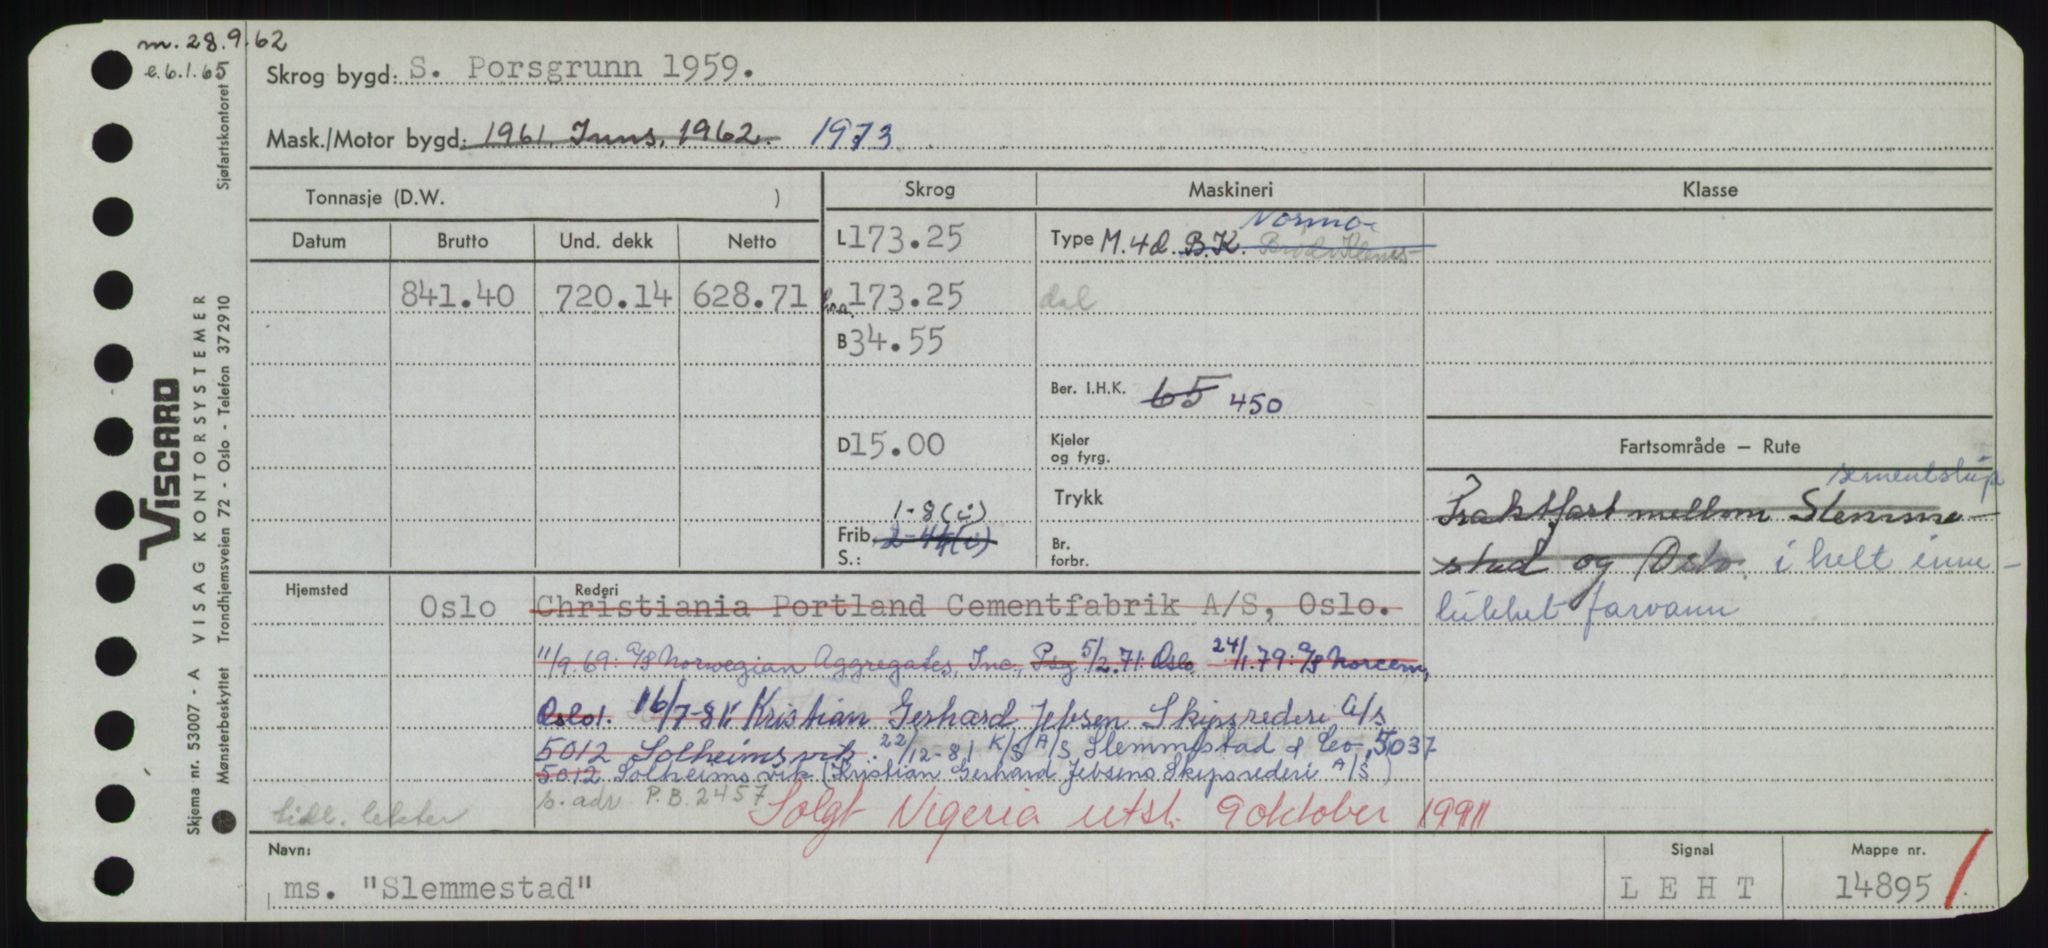 m. 28.9.62
e. 6.1.65
Skrog bygd: S. Porsgrunn 1959.
Mask./Motor bygd: 1961. Inns. 1962. 1973
Tonnasje (D.W. )
Skrog
Maskineri
Klasse
Datum Brutto Und. dekk Netto
841.40 720.14 628.71
L 173.25
Loa. 173.25
B 34.55
D 15.00
1-8 (i)
Frib. 2-4¼(i)
S.:
Normo-
Type M.4d. B.K.
dal
Ber. I.H.K. 65 450
Kjeler
og fyrg.
Trykk
Br.
forbr.
Fartsområde — Rute
sementskip
Fraktfart mellom Slemme-
stad og Oslo. i helt inne-
lukket farvann
Hjemsted
Rederi
Oslo Christiania Portland Cementfabrik A/S, Oslo.
11/9.69: A/S Norwegian Aggregates, Inc., Psg 5/2.71: Oslo 24/1.79: A/S Norcem,
Oslo 1. 16/7-81: Kristian Gerhard Jebsen Skipsrederi A/S
5012 Solheimsvik. 22/12-81 K/S A/S Slemmestad & Co, 5037
5012 Solheimsvik (Kristian Gerhard Jebsens Skipsrederi A/S)
p. adr. P.B. 2457
tidl. lekter
Solgt Nigeria utsl. 9 oktober 1991
Navn:
ms. "Slemmestad"
Signal
LEHT
Mappe nr.
14895
Sjøfartskontoret
VISCARD
VISAG KONTORSYSTEMER
Trondhjemsveien 72 - Oslo - Telefon 37 29 10
Skjema nr. 53007 - A
Mønsterbeskyttet